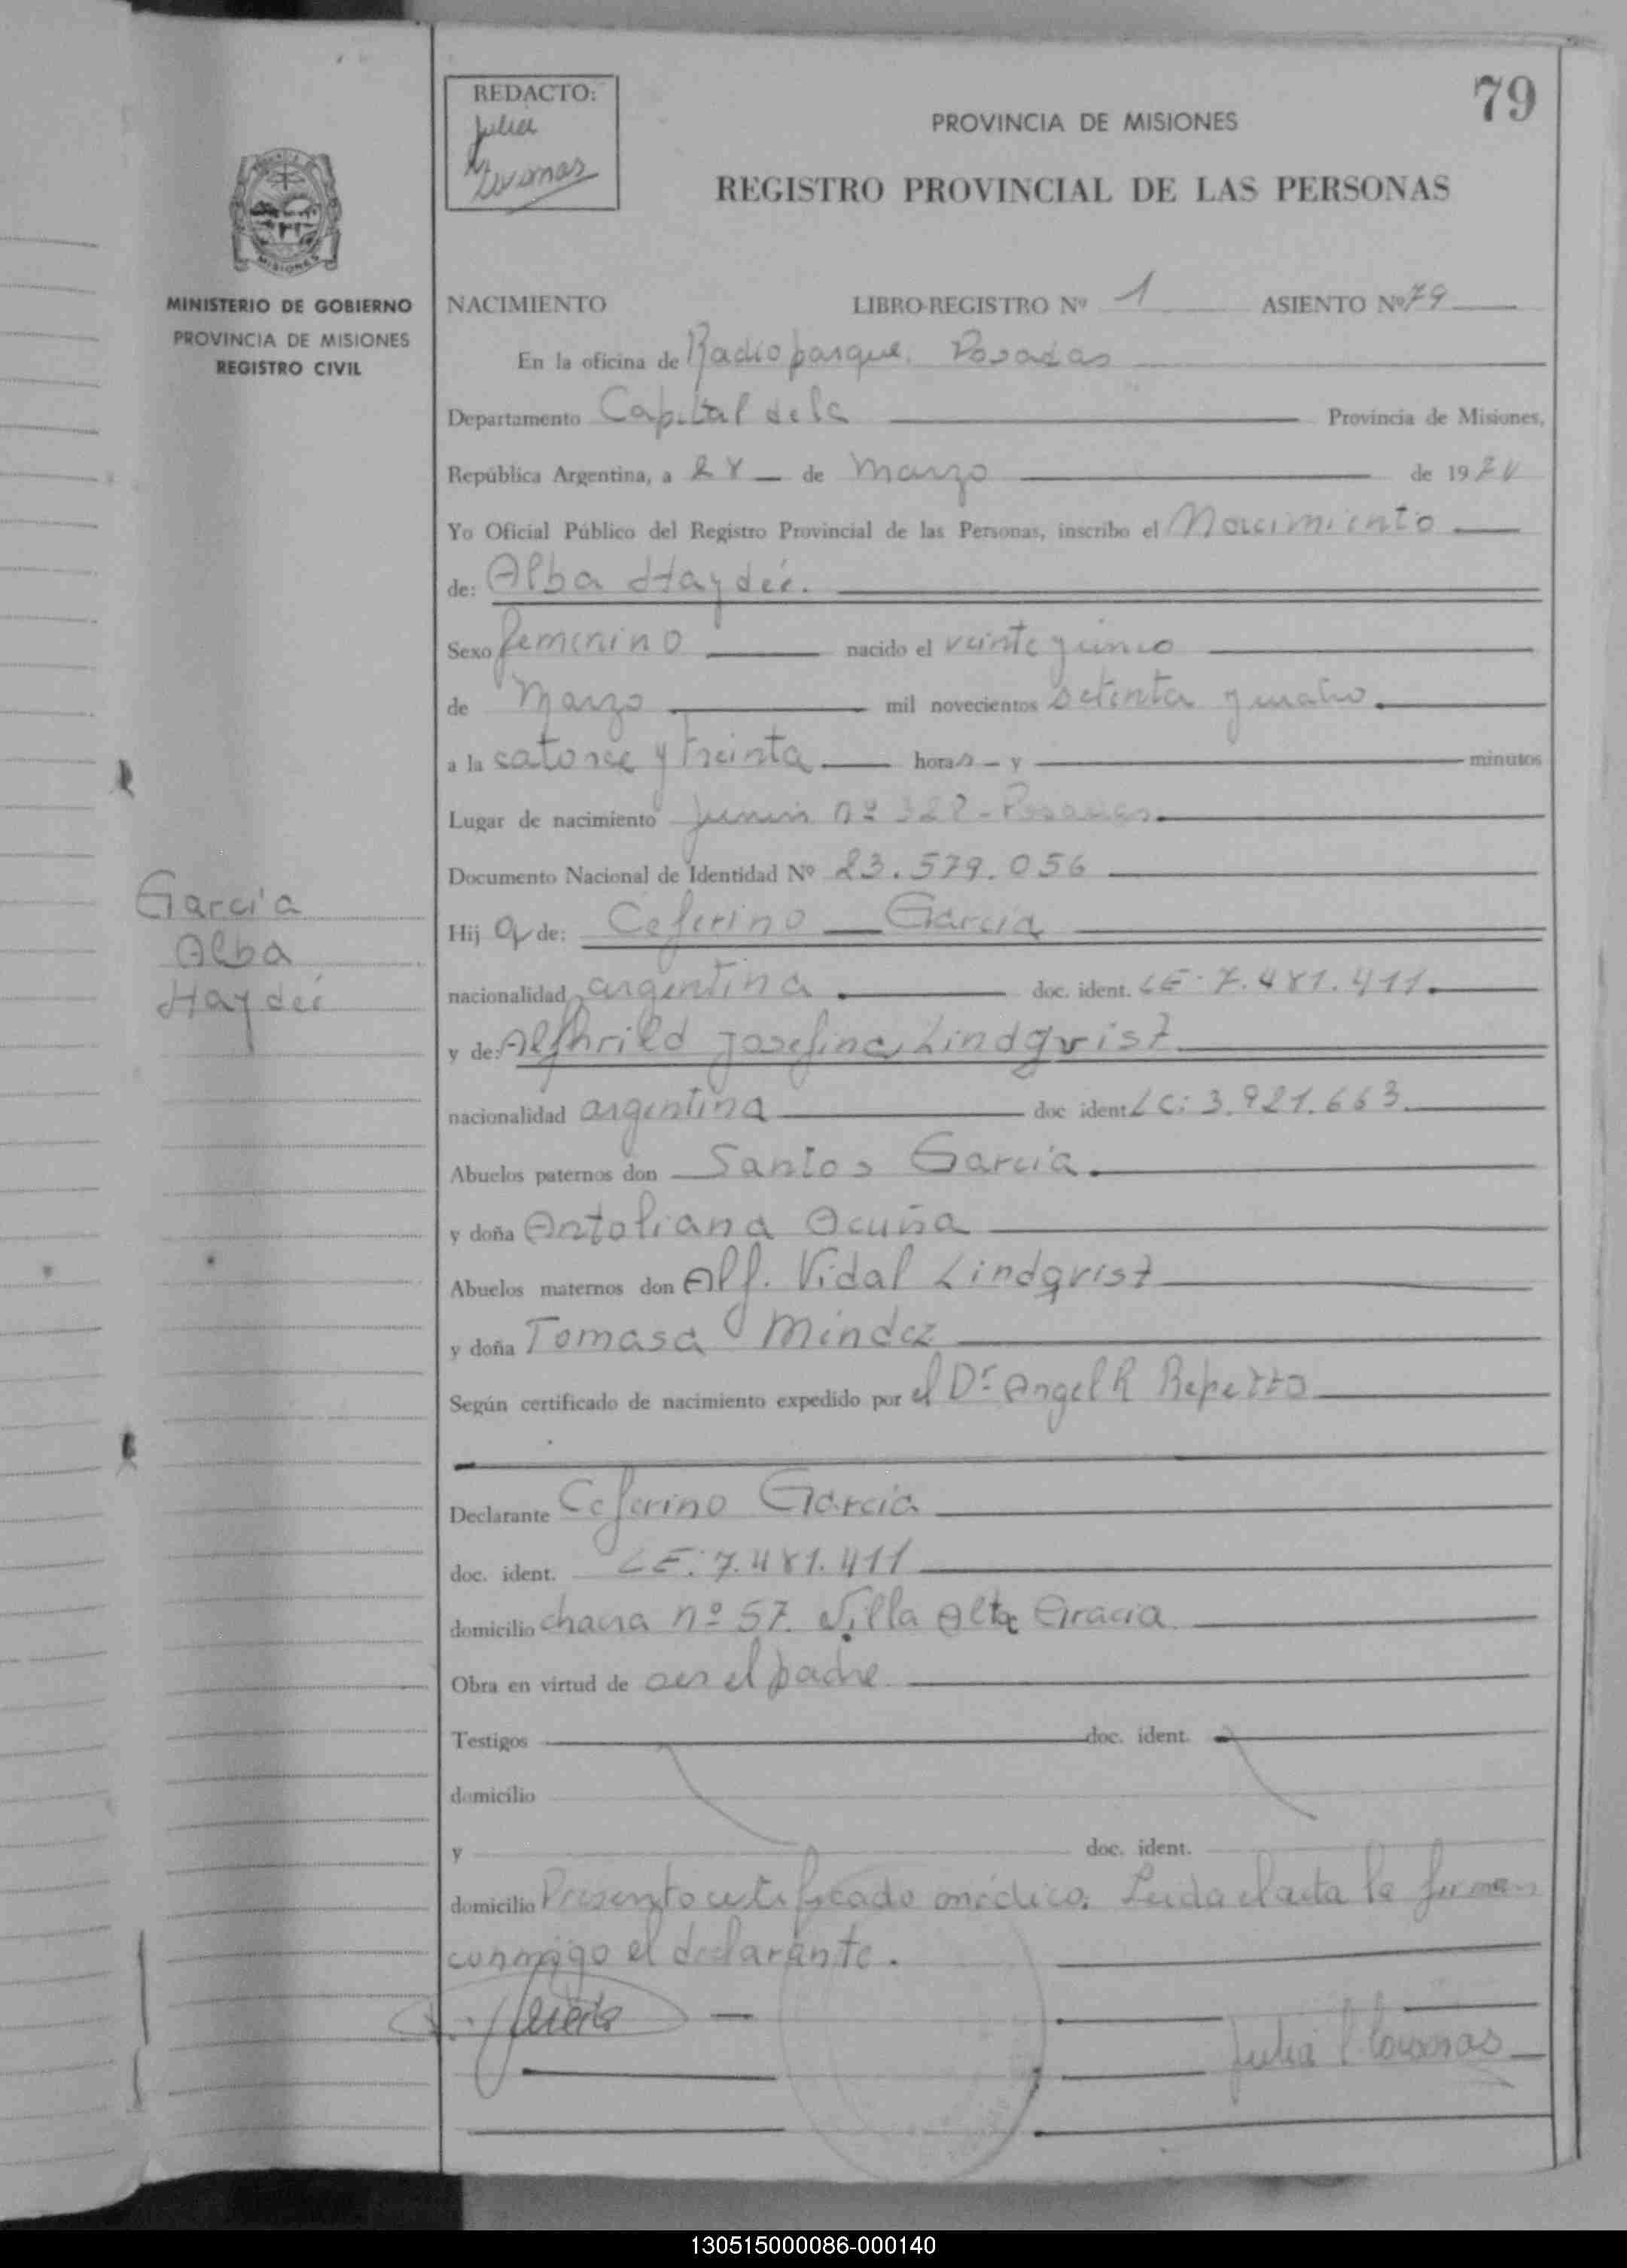 79
REDACTO:
Julia
PROVINCIA DE MISIONES
REGISTRO PROVINCIAL DE LAS PERSONAS
MISIONES
MINISTERIO DE GOBIERNO
PROVINCIA DE MISIONES
REGISTRO CIVIL
NACIMIENTO LIBRO-REGISTRO Nº 1 ASIENTO Nº 79
En la oficina de Radioparque. Posadas
Departamento Capital de la Provincia de Misiones,
República Argentina, a 28 de Marzo de 1974
Yo Oficial Público del Registro Provincial de las Personas, inscribo el Nacimiento
de: Alba Haydée.
Sexo femenino nacido el veinte y cinco
de Marzo mil novecientos setenta y cuatro.
a la catorce y treinta horas - y minutos
Lugar de nacimiento Junin nº 322 - Posadas.
Documento Nacional de Identidad Nº 23.579.056
García
Alba
Haydeé
Hij a de: Ceferino García
nacionalidad argentina doc. ident. LE. 7.481.411.
y de: Alfhrild Josefina Lindqvist
nacionalidad argentina doc ident LC: 3.921.663.
Abuelos paternos don Santos García.
y doña Antoliana Acuña
Abuelos maternos don Alf. Vidal Lindqvist
y doña Tomasa Méndez
Según certificado de nacimiento expedido por el Dr Angel R Repetto
Declarante Ceferino García
doc. ident. LE: 7.481.411
domicilio chacra nº 57. Villa Alta Gracia.
Obra en virtud de ser el padre.
Testigos doc. ident.
domicilio
y doc. ident.
domicilio Presento certificado médico. Leida el acta la firman
conmigo el declarante.
Julia
130515000086-000140